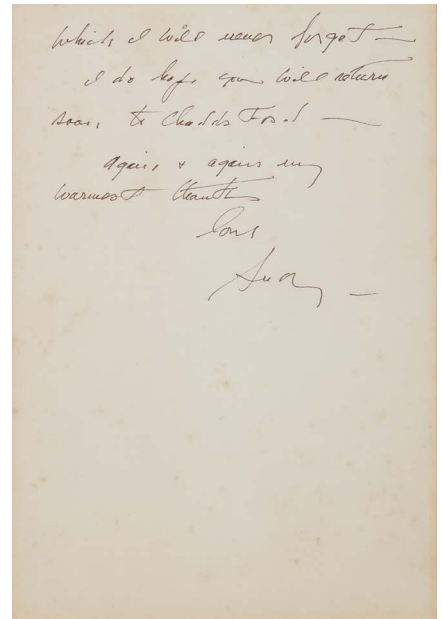 which I will never forget —
I do hope you will return
soon, to Chadds Ford —
again & again my
warmest thanks
Love
Andy —